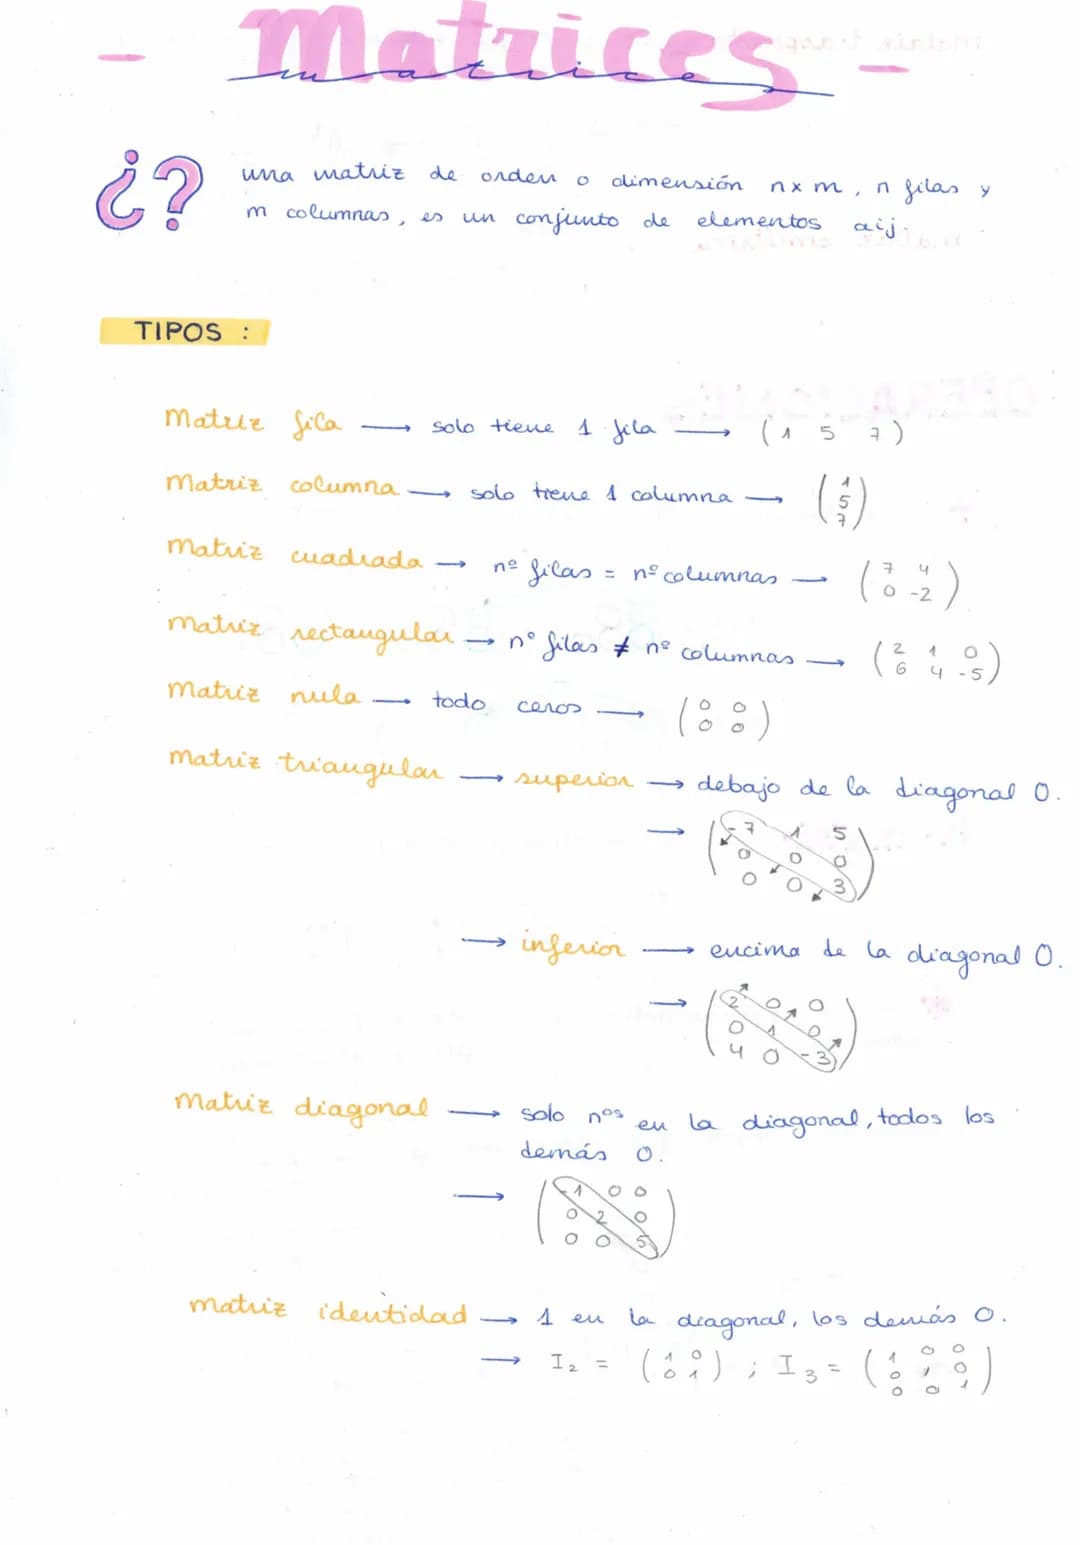 - Matrices -
matrices
¿? una matriz de orden o dimensión nxm, n filas y
m columnas, es un conjunto de elementos aij.
TIPOS :
Matriz fila → solo tiene 1 fila → (1 5 7)
Matriz columna → solo tiene 1 columna → (1
5
7)
Matriz cuadrada → nº filas = nº columnas → (7 4
0 -2)
Matriz rectangular → nº filas ≠ nº columnas → (2 1 0
6 4 -5)
Matriz nula → todo ceros → (0 0
0 0)
Matriz triangular → superior → debajo de la diagonal 0.
→ (-7 1 5
0 0 0
0 0 3)
→ inferior → encima de la diagonal 0.
→ (2 0 0
0 1 0
4 0 -3)
Matriz diagonal → solo nos en la diagonal, todos los
demás 0.
→ (-1 0 0
0 2 0
0 0 5)
Matriz identidad → 1 en la diagonal, los demás 0.
→ I2 = (1 0
0 1) ; I3 = (1 0 0
0 1 0
0 0 1)